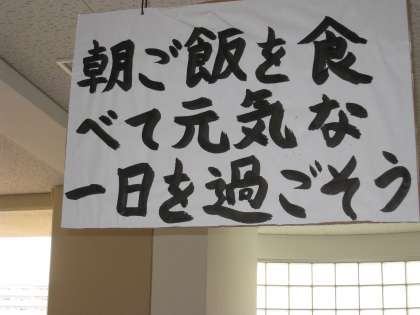 朝ご飯を食
べて元気な
一日を過ごそう